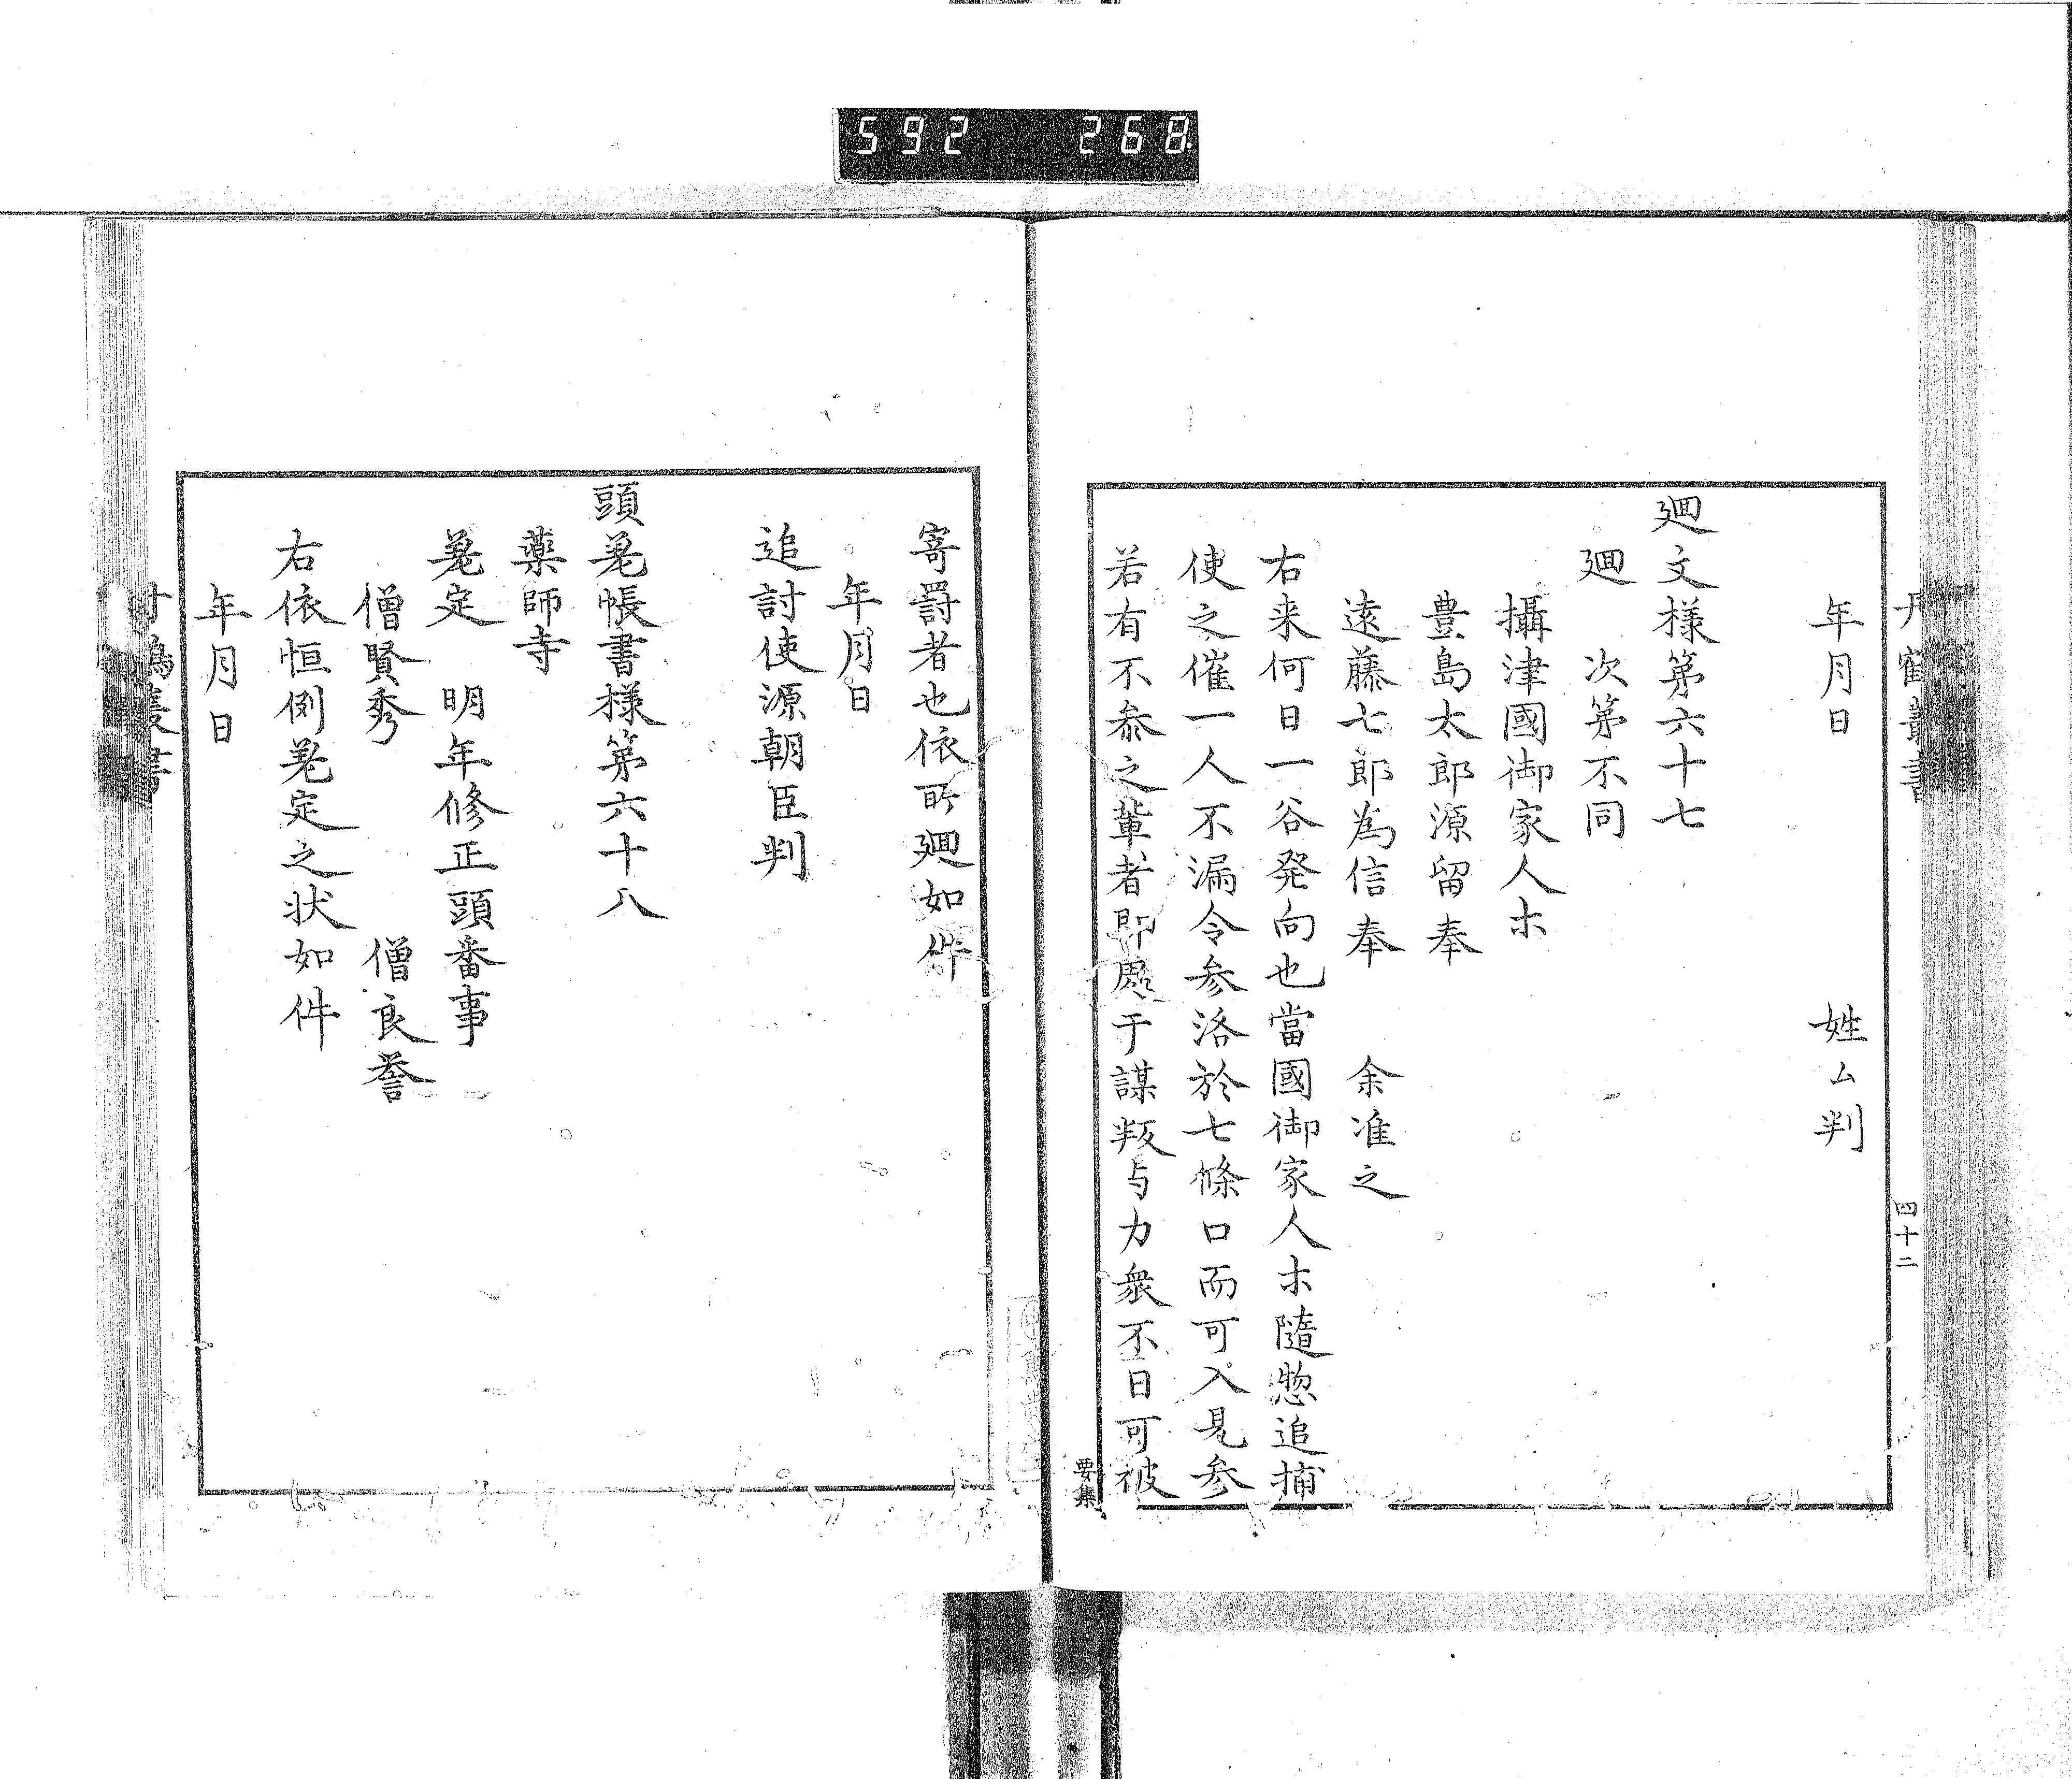 592 268
丹鶴叢書
四十二
年月日 姓ム判
廻文様第六十七
廻 次第不同
攝津國御家人ホ
豊島太郎源留奉
遠藤七郎為信奉 余准之
右来何日一谷発向也當國御家人ホ隨惣追捕
使之催一人不漏令参洛於七條口而可入見参
若有不叅之輩者即處于謀叛与力衆不日可被
要集
寄罸者也依所廻如件
年月日
追討使源朝臣判
頭差帳書様第六十八
薬師寺
差定 明年修正頭番事
僧賢秀 僧良誉
右依恒例差定之状如件
年月日